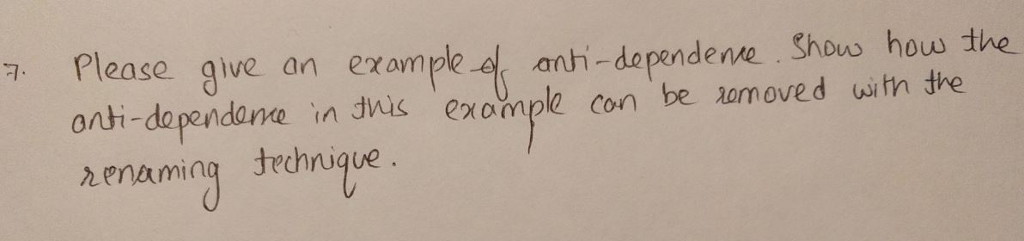 7. Please give an example of anti-dependence. Show how the
anti-dependence in this example can be removed with the
renaming technique.